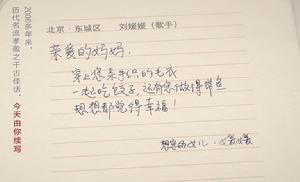 2000多年来，
历代名流孝敬之千古佳话，
今天由你续写
北京·东城区 刘媛媛（歌手）
亲爱的妈妈：
穿上您亲手织的毛衣
一起吃饺子，还有您做得带鱼
想想都觉得幸福！
想您的女儿：媛媛